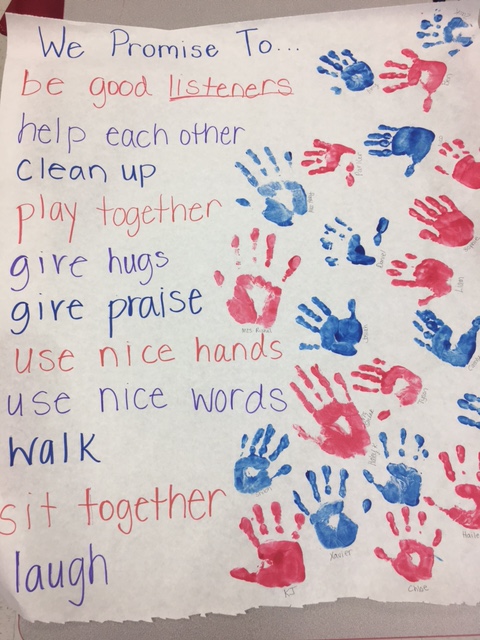 We Promise To...
be good listeners
help each other
clean up
play together
give hugs
give praise
use nice hands
use nice words
walk
sit together
laugh
Xavier
KJ
Chloe